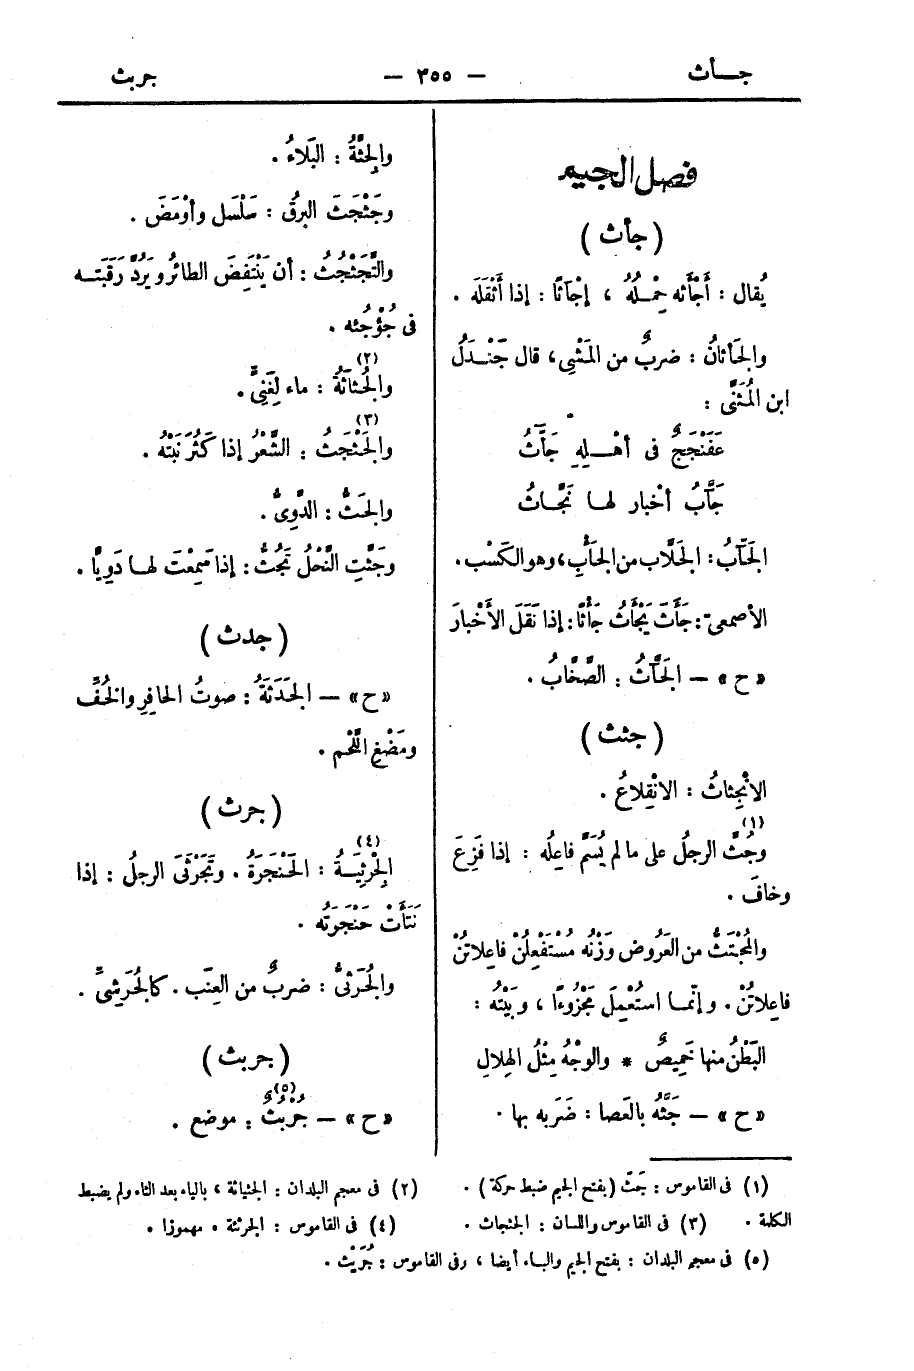 جـأث — ٣٥٥ — جربث
فصل الجيم
(جأث)
يُقال : أَجْأَثه حِمْـلُهُ ، إجْآثًا : إذا أَثْقَلَه .
والجَأَثانُ : ضربٌ من المَشْىِ، قال جَنْدَلُ
ابن المُثَنَّى :
عَفَنْجَجٌ فى أهْـلِهِ جَآَّثُ
جَآَّبُ أخْبار لهـا نَجَّـاثُ
الجَآَّبُ: الجَلَّاب من الجَأْبِ، وهو الكَسْب.
الأصمعىّ: جَأَثَ يَجْأَثُ جَأْثًا: إذا نَقَلَ الأَخْبارَ
«ح» — الجَآَّثُ : الصَّخَّابُ .
(جثث)
الانْجِثاثُ : الانْقِلاعُ .
وجُثَّ (١) الرجلُ على ما لم يُسَمَّ فاعِلُه : إذا فَزِعَ
وخافَ .
والمُجْتَثُّ من العَرُوض وَزْنُه مُسْتَفْعِلُنْ فاعِلاتُنْ
فاعِلاتُنْ . وإنّمـا اسْتُعْمِلَ مَجْزُوءًا ، وبَيْتُه :
البَطْنُ منها خَمِيصٌ * والوجْهُ مِثْلُ الهِلالِ
«ح» — جَثَّهُ بالعَصا : ضَرَبه بها .
والجِثَّةُ : البَلاءُ .
وجَثْجَثَ البرقُ : سَلْسَل وأوْمَضَ .
والتَّجَثْجُثُ : أن يَنْتَفِضَ الطائرُ ويَرُدَّ رَقَبَتَـه
فى جُؤْجُئه .
والجُثاثَةُ (٢) : ماء لِغَنِىٍّ .
والجَثْجَثُ (٣) : الشَّعْرُ إذا كَثُرَ نَبْتُهُ .
والجَثُّ : الدَّوِىُّ .
وجَثَّتِ النَّحْلُ تَجُثُّ : إذا سَمِعْتَ لهـا دَوِيًّا .
(جدث)
«ح» — الجَدَثَةُ : صوتُ الحافِرِ والخُفِّ
ومَضْغِ اللَّحْم .
(جرث)
الجِرْثِيَـةُ (٤) : الحَنْجَرَةُ . وتَجَرْثَى الرجلُ : إذا
نَتَأَتْ حَنْجَرَتُه .
والجُرَثىُّ : ضربٌ من العِنَب . كالجُرَشِىِّ .
(جربث)
«ح» — جُرْبُثٌ (٥) : موضع .
(١) فى القاموس : جَثّ (بفتح الجيم ضبط حركة) . (٢) فى معجم البلدان : الجثياثة ، بالياء بعد الثاء ولم يضبط
الكلمة . (٣) فى القاموس واللسان : الجثجاث . (٤) فى القاموس : الجرثئة . مهموزا .
(٥) فى معجم البلدان : بفتح الجيم والباء أيضا ، وفى القاموس : جُرَيْث .